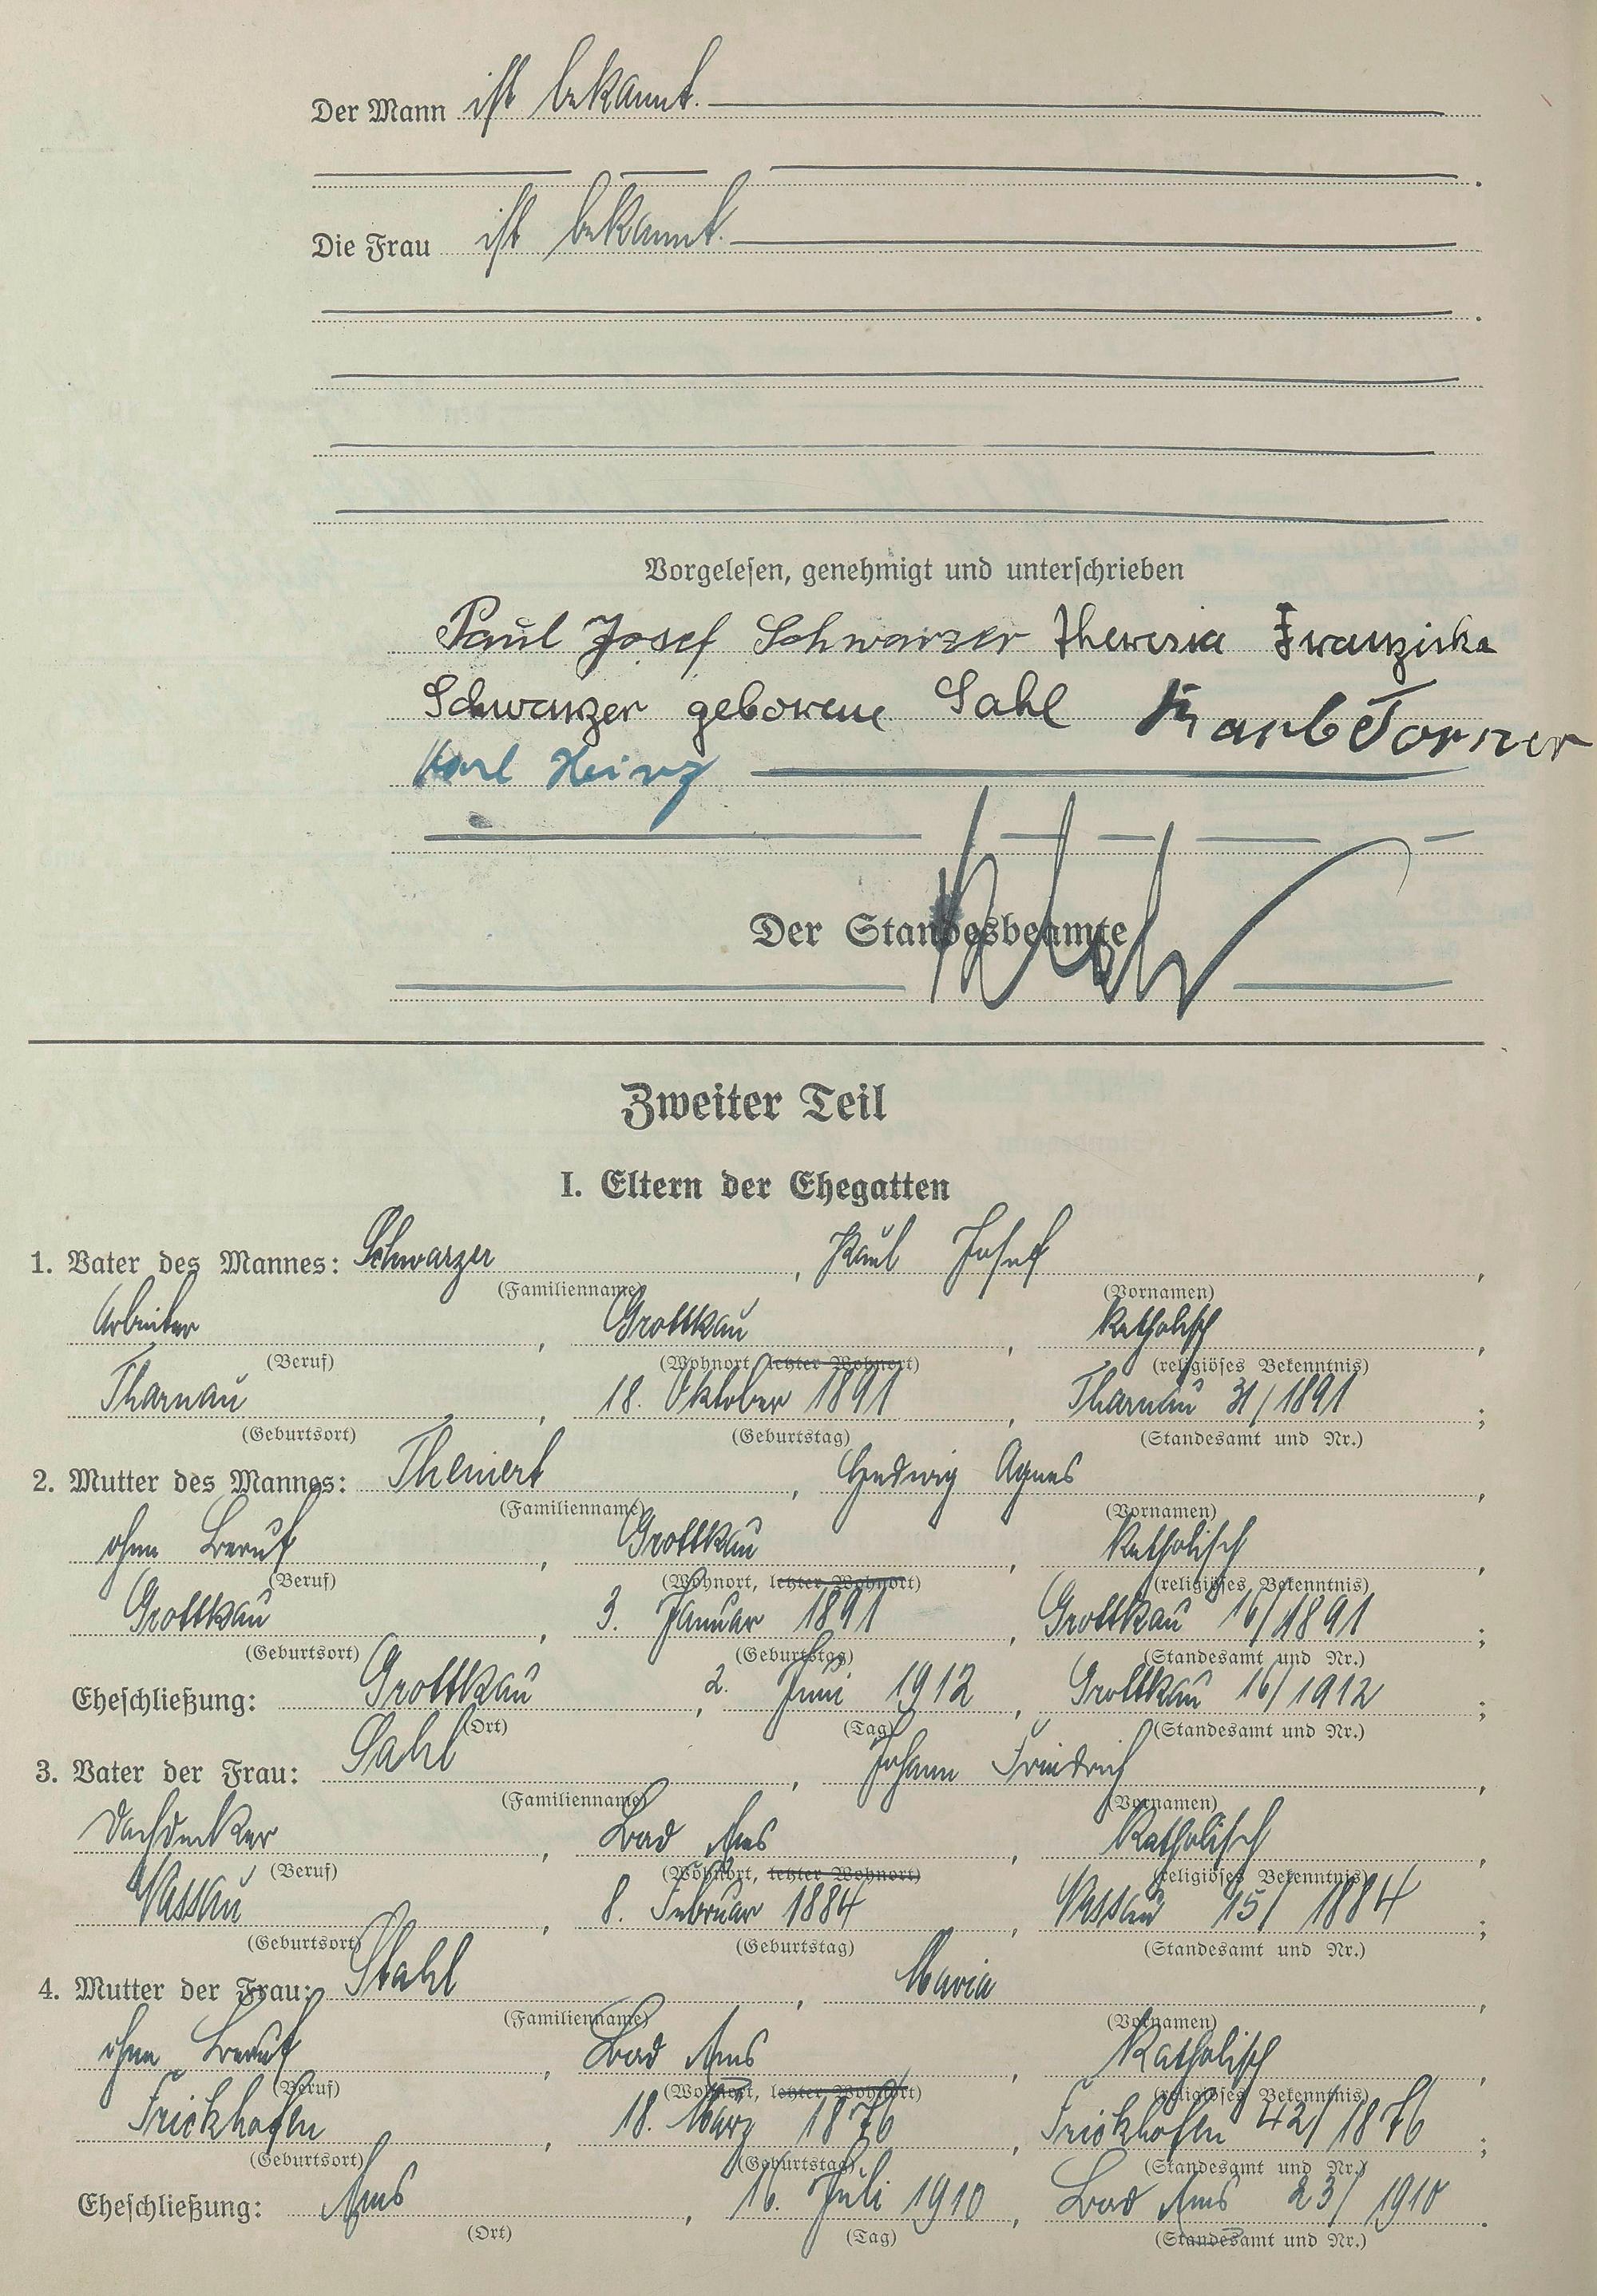 Der Mann ist bekannt.
Die Frau ist bekannt.
Vorgelesen, genehmigt und unterschrieben
Paul Josef Schwarzer Theresia Franziska
Schwarzer geborene Sahl Karl Forner
Karl Heinz
Der Standesbeamte
Zweiter Teil
I. Eltern der Ehegatten
1. Vater des Mannes: Schwarzer, Paul Josef,
(Familienname) (Vornamen)
Arbeiter, Grottkau, Katholisch,
(Beruf) (Wohnort, letzter Wohnort) (religiöses Bekenntnis)
Tharnau, 18. Oktober 1891, Tharnau 31/1891;
(Geburtsort) (Geburtstag) (Standesamt und Nr.)
2. Mutter des Mannes: Theinert, Hedwig Agnes,
(Familienname) (Vornamen)
ohne Beruf, Grottkau, Katholisch,
(Beruf) (Wohnort, letzter Wohnort) (religiöses Bekenntnis)
Grottkau, 3. Januar 1891, Grottkau 16/1891;
(Geburtsort) (Geburtstag) (Standesamt und Nr.)
Eheschließung: Grottkau, 2. Juni 1912, Grottkau 16/1912;
(Ort) (Tag) (Standesamt und Nr.)
3. Vater der Frau: Sahl, Johann Friedrich,
(Familienname) (Vornamen)
Dachdecker, Bad Ems, Katholisch,
(Beruf) (Wohnort, letzter Wohnort) (religiöses Bekenntnis)
Nassau, 8. Februar 1884, Nassau 15/1884;
(Geburtsort) (Geburtstag) (Standesamt und Nr.)
4. Mutter der Frau: Stahl, Maria,
(Familienname) (Vornamen)
ohne Beruf, Bad Ems, Katholisch,
(Beruf) (Wohnort, letzter Wohnort) (religiöses Bekenntnis)
Frickhofen, 18. März 1876, Frickhofen 42/1876;
(Geburtsort) (Geburtstag) (Standesamt und Nr.)
Eheschließung: Ems, 16. Juli 1910, Bad Ems 23/1910.
(Ort) (Tag) (Standesamt und Nr.)